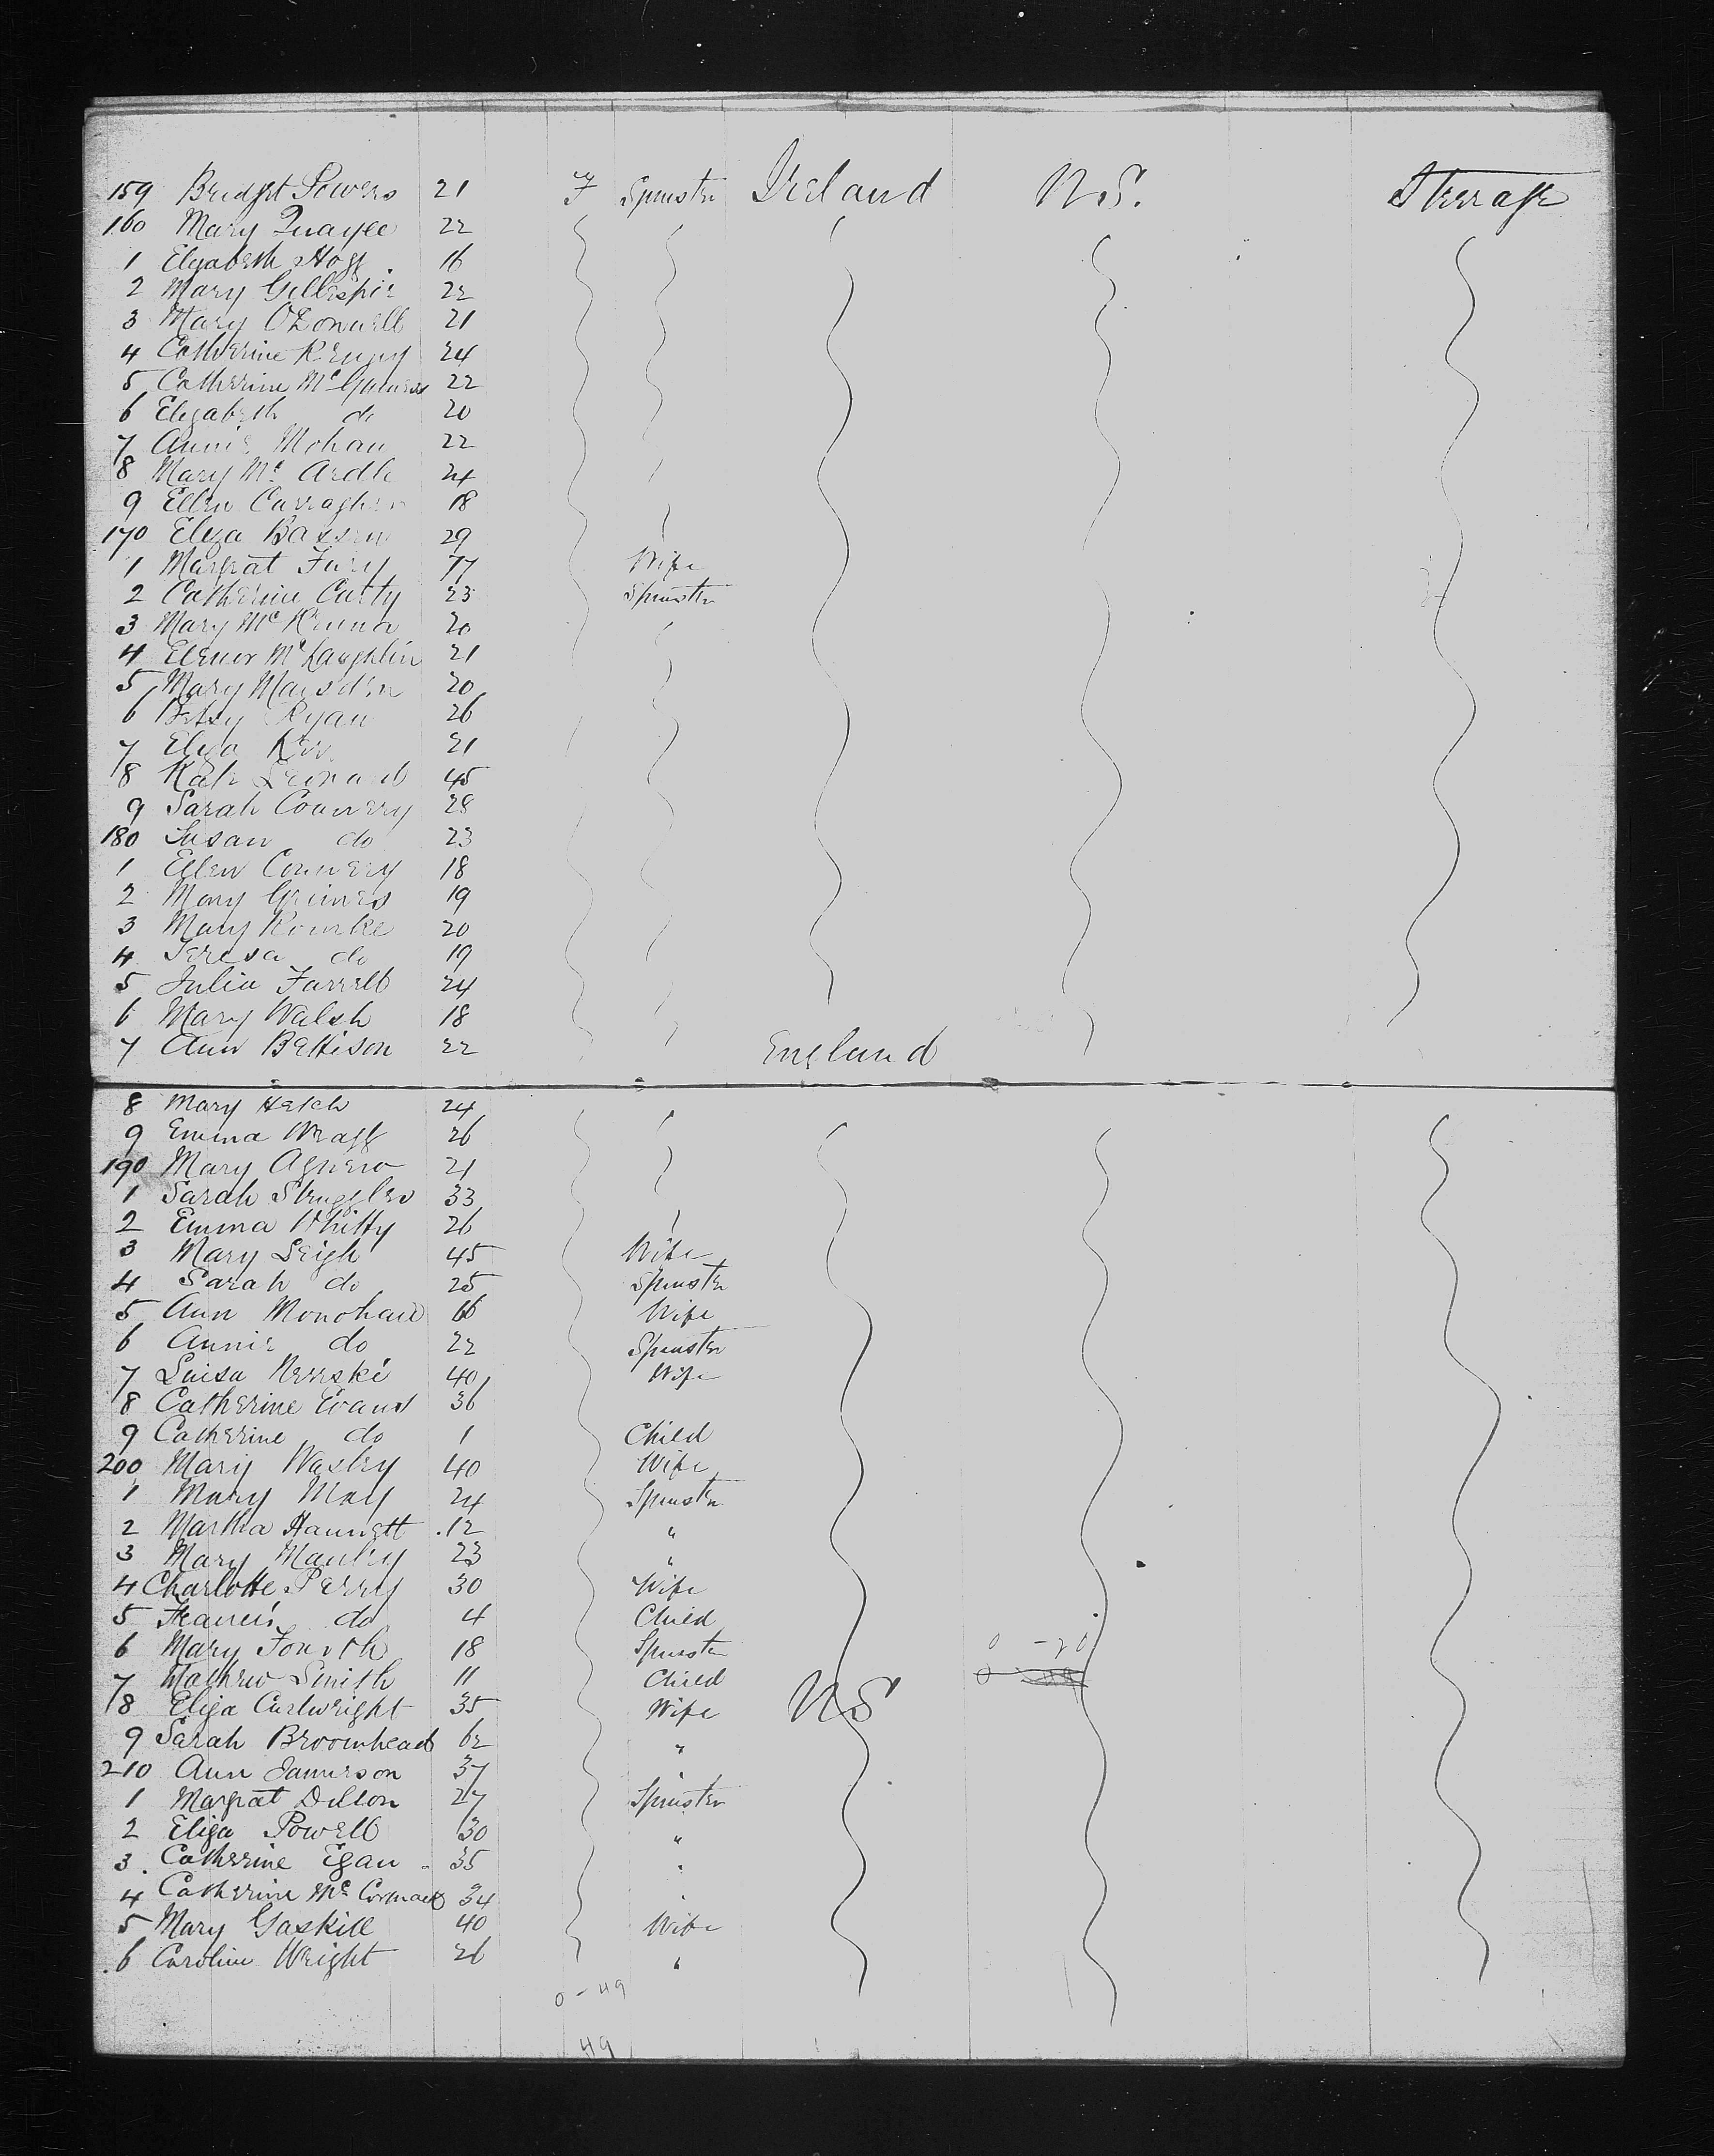 159 Bridget Powers 21 F Spinster Ireland U.S. Steerage
160 Mary Quayle 22
1 Elizabeth Hogg 16
2 Mary Gillespie 22
3 Mary O'Donnell 21
4 Catherine 24
5 Catherine Mc 22
6 Elizabeth do 20
7 Annie Mohan 22
8 Mary Mc Ardle 24
9 Ellen Carragher 18
170 Eliza 29
1 Margrat Fury 77 Wife
2 Catherine Carty 23 Spinster
3 Mary McKenna 20
4 Elenor McLaughlin 21
5 Mary Marsden 20
6 Betsy Ryan 26
7 Eliza Kerr 21
8 Kate Leonard 45
9 Sarah Connery 28
180 Susan do 23
1 Ellen Connery 18
2 Mary Grimes 19
3 Mary Rourke 20
4 Teresa do 19
5 Julia Farrell 24
6 Mary Walsh 18
7 Ann Bettison 22 England
8 Mary 24
9 Emma Wragg 26
190 Mary Agnew 21
1 Sarah Struggles 33
2 Emma Whitty 26
3 Mary Leigh 45 Wife
4 Sarah do 25 Spinster
5 Ann Monohan 66 Wife
6 Annie do 22 Spinster
7 Luisa 40 Wife
8 Catherine Evans 36
9 Catherine do 1 Child
200 Mary Wasley 40 Wife
1 Mary May 24 Spinster
2 Martha Hannett 12 "
3 Mary Manley 23 "
4 Charlotte Perry 30 Wife
5 Francis do 4 Child
6 Mary 18 Spinster 0 - 20
7 Mathew Smith 11 Child
8 Eliza Cartwright 35 Wife U.S
9 Sarah Broomhead 62 "
210 Ann Jamerson 37 "
1 Margrat Dillon 27 Spinster
2 Eliza Powell 30 "
3 Catherine Egan 35 "
4 Catherine Mc Cormack 34 "
5 Mary Gaskill 40 Wife
6 Caroline Wright 26 "
0 - 49
49